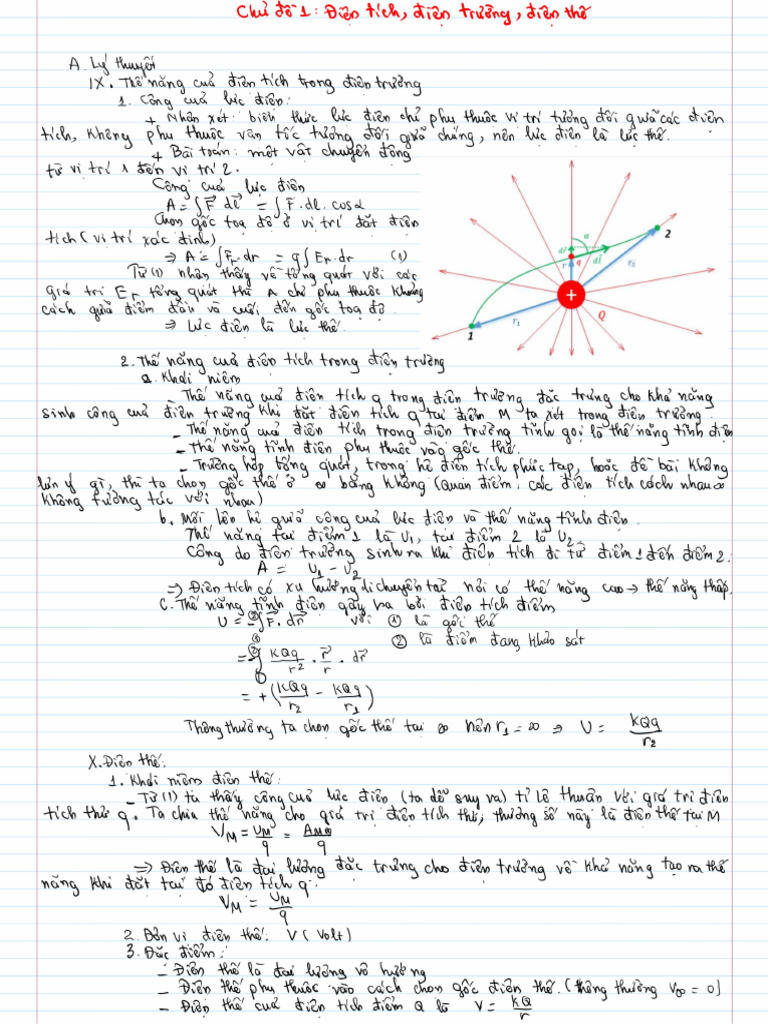 Chủ đề 1: Điện tích, điện trường, điện thế
A. Lý thuyết
IX. Thế năng của điện tích trong điện trường
1. Công của lực điện:
+ Nhận xét: biểu thức lực điện chỉ phụ thuộc vị trí tương đối giữa các điện
tích, không phụ thuộc vận tốc tương đối giữa chúng, nên lực điện là lực thế.
+ Bài toán: một vật chuyển động
từ vị trí 1 đến vị trí 2.
Công của lực điện
A = ∫F⃗ dl⃗ = ∫F.dl.cosα
Chọn gốc toạ độ ở vị trí đặt điện
tích (vị trí xác định)
⇒ A = ∫Fr.dr = q∫Er.dr (1)
Từ (1) nhận thấy về tổng quát với các
giá trị Er tổng quát thì A chỉ phụ thuộc khoảng
cách giữa điểm đầu và cuối đến gốc toạ độ.
⇒ Lực điện là lực thế.
1
2
r1
r2
r
q
Q
dr
dl
α
+
2. Thế năng của điện tích trong điện trường
a. Khái niệm
- Thế năng của điện tích q trong điện trường đặc trưng cho khả năng
sinh công của điện trường khi đặt điện tích q tại điểm M ta xét trong điện trường.
- Thế năng của điện tích trong điện trường tĩnh gọi là thế năng tĩnh điện
- Thế năng tĩnh điện phụ thuộc vào gốc thế.
- Trường hợp tổng quát, trong hệ điện tích phức tạp, hoặc đề bài không
lưu ý gì, thì ta chọn gốc thế ở ∞ bằng không (quan điểm: các điện tích cách nhau ∞
không tương tác với nhau)
b. Mối liên hệ giữa công của lực điện và thế năng tĩnh điện.
Thế năng tại điểm 1 là U1, tại điểm 2 là U2
Công do điện trường sinh ra khi điện tích đi từ điểm 1 đến điểm 2:
A = U1 - U2
⇒ Điện tích có xu hướng di chuyển từ nơi có thế năng cao → thế năng thấp.
C. Thế năng tĩnh điện gây ra bởi điện tích điểm
U = -∫①② F⃗.dr⃗ với ① là gốc thế
② là điểm đang khảo sát
= -∫①② kQq/r² . r⃗/r . dr⃗
= +(kQq/r2 - kQq/r1)
Thông thường ta chọn gốc thế tại ∞ nên r1 = ∞ ⇒ U = kQq/r2
X. Điện thế:
1. Khái niệm điện thế:
- Từ (1) ta thấy công của lực điện (ta dễ suy ra) tỉ lệ thuận với giá trị điện
tích thử q. Ta chia thế năng cho giá trị điện tích thử, thương số này là điện thế tại M
VM = UM/q = AM∞/q
⇒ Điện thế là đại lượng đặc trưng cho điện trường về khả năng tạo ra thế
năng khi đặt tại đó điện tích q.
VM = UM/q
2. Đơn vị điện thế: V (Volt)
3. Đặc điểm:
- Điện thế là đại lượng vô hướng
- Điện thế phụ thuộc vào cách chọn gốc điện thế. (thông thường V∞ = 0)
- Điện thế của điện tích điểm Q là V = kQ/r